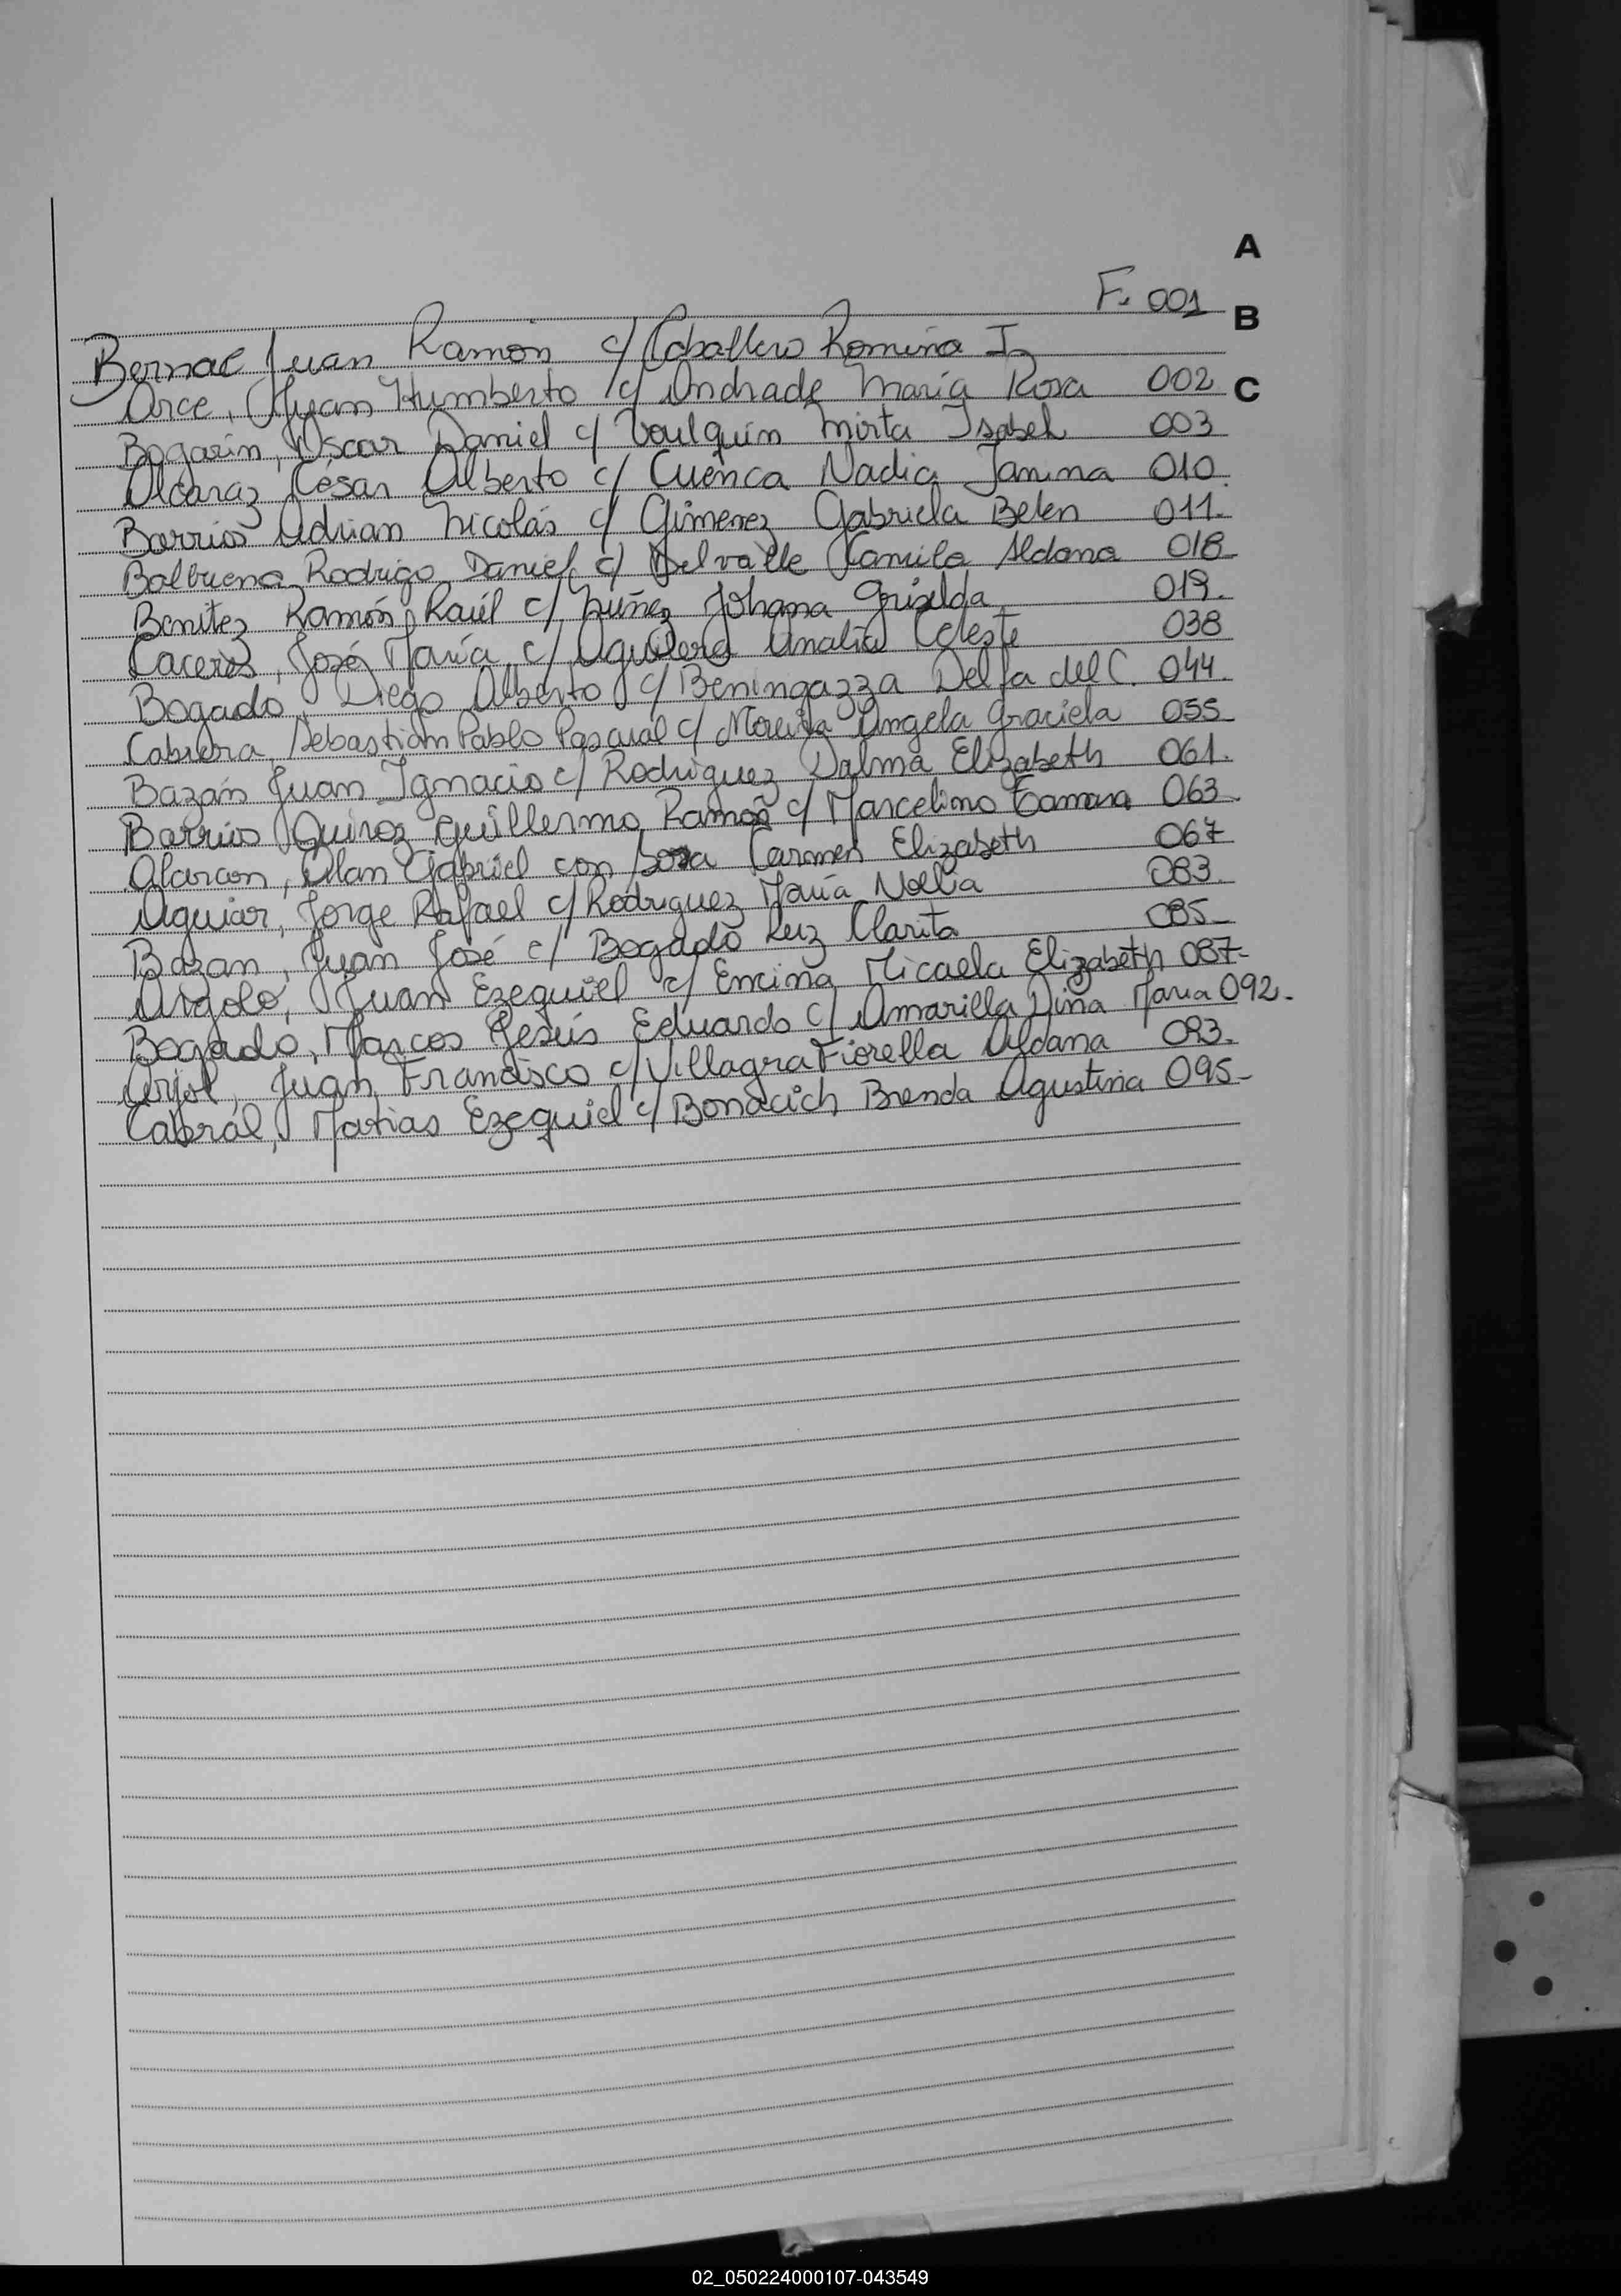 A
F. 001
B
Bernal Juan Ramón c/ Caballero Romina I.
Arce, Juan Humberto c/ Andrade María Rosa 002
C
Bogarín, Oscar Daniel c/ Voulquin Mirta Isabel 003
Alcaraz César Alberto c/ Cuenca Nadia Janina 010.
Barrios Adrian Nicolás c/ Gimenez Gabriela Belen 011.
Balbuena Rodrigo Daniel c/ Delvalle Camila Aldana 018
Benitez Ramón Raúl c/ Nuñez Johana Griselda 019.
Caceres, José María c/ Aguilera Analia Celeste 038
Bogado Diego Alberto c/ Beningazza Delfa del C. 044.
Cabrera, Sebastián Pablo Pascual c/ Moreira Angela Graciela 055
Bazán Juan Ignacio c/ Rodriguez Dalma Elizabeth 061.
Barrios Quiroz Guillermo Ramón c/ Marcelino Tamara 063.
Alarcon, Alan Gabriel con Sosa Carmen Elizabeth 067
Aguiar, Jorge Rafael c/ Rodriguez María Noelia 083.
Bazan, Juan José c/ Bogado Luz Clarita 085-
Argolo, Juan Ezequiel c/ Encina Micaela Elizabeth 087-
Bogado, Marcos Jesús Eduardo c/ Amarilla Dina Maria 092-
Arjol, Juan Francisco c/ Villagra Fiorella Aldana 093.
Cabral, Matias Ezequiel c/ Bonacich Brenda Agustina 095-
02_050224000107-043549